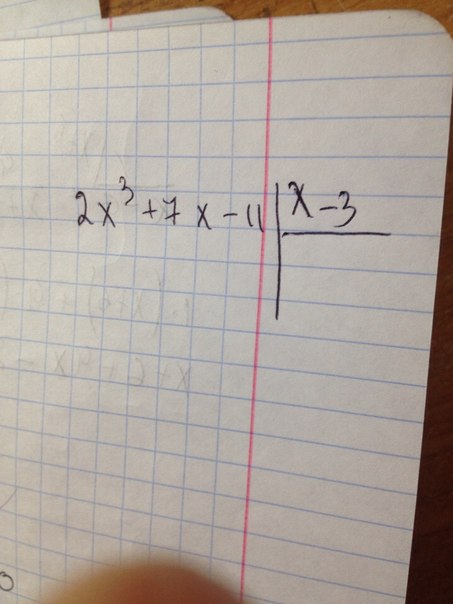 2x³+7x-11 | x-3